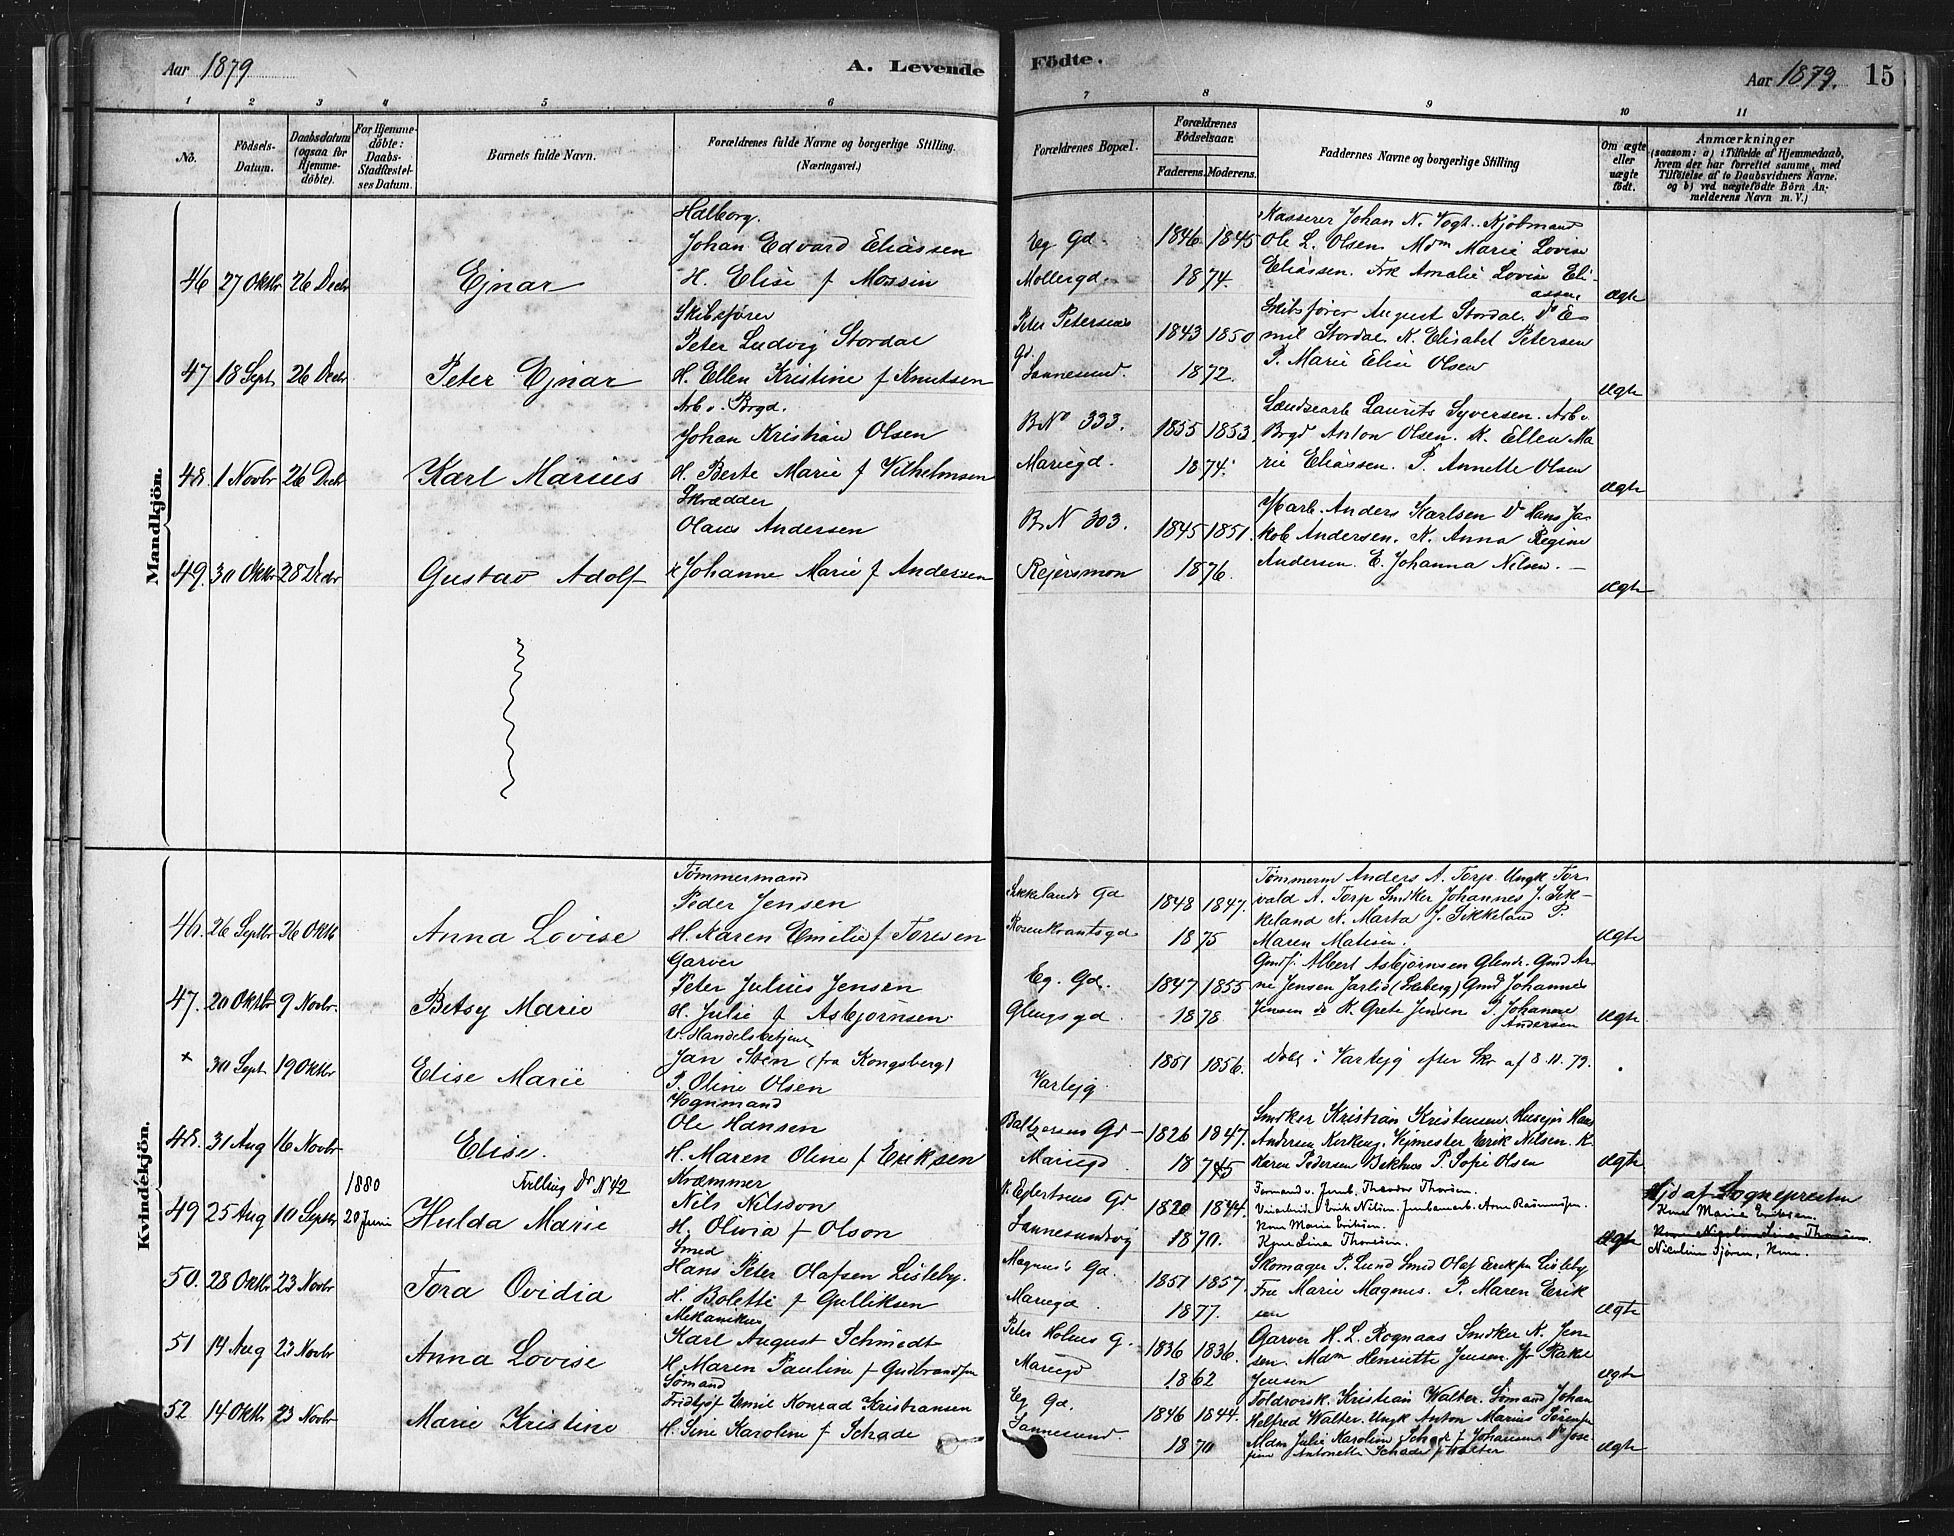 Aar 1879 A. Levende Födte. Aar 1879. 15
1 2 3 4 5 6 7 8 9 10 11
No.
Födsels-Datum.
Daabsdatum (ogsaa for Hjemme-döbte).
For Hjemme-döbte: Daabs-Stadfæstel-ses Datum.
Barnets fulde Navn.
Forældrenes fulde Navne og borgerlige Stilling. (Næringsvei.)
Forældrenes Bopæl.
Forældrenes Födselsaar.
Faderens. Moderens.
Faddernes Navne og borgerlige Stilling
Om ægte eller uægte födt.
Anmærkninger
(saasom: a) i Tilfælde af Hjemmedaab,
hvem der har forrettet samme, med
Tilföielse af to Daabsvidners Navne.
og b) ved uægtefödte Börn An-
melderens Navn m. V.)
Mandkjön.
46 27 Oktbr 26 Decbr Ejnar
Johan Edvard Eliassen
H. Elise f Mossin
Eg Gd
Møllergd.
1846 1845
1874.
Kasserer Johan N. Vogt. Kjøbmand
Ole L. Olsen. Mdm Marie Lovise
Eliassen. Frk Amalie Lovise Eli-
assen.
ægte
47 18 Sept 26 Decbr Peter Ejnar
Skibsfører
Peter Ludvig Stordal
H. Ellen Kristine f Knutsen
Peter Petersens
Gd.
Sannesund.
1843 1850
1872.
Skibsfører August Stordal. D E-
mil Stordal K. Elisabet Petersen
P. Marie Elise Olsen
ægte
48. 1 Novbr 26 Decbr Karl Marius
Arb v. Brgd.
Johan Kristian Olsen
H. Berte Marie f Vilhelmsen
BNo 333.
Mariegd.
1855 1853.
1874.
Laurits Syversen. Arb v
Brgd Anton Olsen. K. Ellen Ma
rie Eliassen. P. Annette Olsen
ægte
49. 30 Oktbr 28 Decbr Gustav Adolf
Skrædder
Olaus Andersen
H Johanne Marie f Andersen
B N 303.
Rejersmon
1845 1851.
1876.
Anders Karlsen D Hans Ja-
kob Andersen. K. Anna Regine
Andersen. E. Johanna Nilsen. —
ægte
Kvindekjön.
46. 26 Septbr 26 Oktb Anna Lovise
Tømmermand
Peder Jensen
H. Karen Emilie f Toresen
Sikkelands Gd
Rosenkrantsgd
1848 1847.
1875
Tømmerm Anders A. Torp Ungk Tor-
vald A. Torp Sndker Johannes J. Sik-
keland K. Marta J. Sikkeland P.
Maren Matisen.
ægte
47. 20 Oktbr 9 Novbr. Betsy Marie
Garver
Peter Julius Jensen
H. Julie f Asbjørnsen
Eg. Gd.
Glengsgd.
1847 1855
1878
Albert Asbjørnsen Glende. Gmd Ar-
ne Jensen Gmd Johannes
Jensen K. Grete Jensen P. Johanne
Andersen
ægte
× 30 Sept. 19 Oktbr Elise Marie
V. Handelsbetjent
Jan Sten (fra Kongsberg)
P. Oline Olsen
Varteig.
1851 1856.
Døbt i Varteig efter Skr af 8.11.79.
48. 31 Aug 16 Novbr Elise.
Vognmand
Ole Hansen
H. Maren Oline f Eriksen
Baltzersens Gd
Mariegd
1826 1847.
18 745
Sndker Kristian Kristensen. Husejer Hans
Andersen Kirkeng. Vejmester Erik Nilsen. K
Karen Pedersen Bekhus P. Sofie Olsen
ægte
Tvilling Dr N 42
49 25 Aug 10 Septbr 1880 20 Juni Hulda Marie
Kræmmer
Nils Nilsson
H. Olivia f Olson
Eylertsens Gd
Sannesundvej
1820 1844.
1870.
Formand v. Jernb. Theodor Thorsen.
Erik Nilsen. Jernbanearb. Arne Rasmussen.
Kone Marie Eriksen.
Kone Lina Thorsen.
ægte
Hjd af Sognepresten
Kone Marie Eriksen.
Nicoline Sjøren, Kone.
50. 28 Oktbr 23 Novbr Tora Ovidia
Smed
Hans Peter Olafsen Lisleby.
H. Bolette f Gulliksen
Magnus's Gd.
Mariegd.
1851 1857.
1877.
Skomager P. Lund Smed Olaf Eriksen Lisleby
Fru Marie Magnus. P. Maren Erik
sen
ægte
51 14 Aug 23 Novbr Anna Lovise
Mekanikus
Karl August Schmedt
H. Maren Pauline f Gudbrandsen
Peter Holms G.
Mariegd
1836 1836.
1862
Garver H. L. Rognaas Sndker N. Jen-
sen. Mdm Henriette Jensen. Jfr Rakel
Jensen
ægte
52 14 Oktbr 23 Novbr Marie Kristine
Sømand
Fridtjof Emil Konrad Kristiansen
H. Sine Karoline f Schade
Eg Gd.
Sannesund
1846 1844.
1870
Toldrorsk. Kristian Walter. Sømand Johan
Helfred Walter. Ungk Anton Marius Sørensen
Mdm Julie Karoline Schade f Johansen D Jose
fine Antonette Schade f Walter
ægte